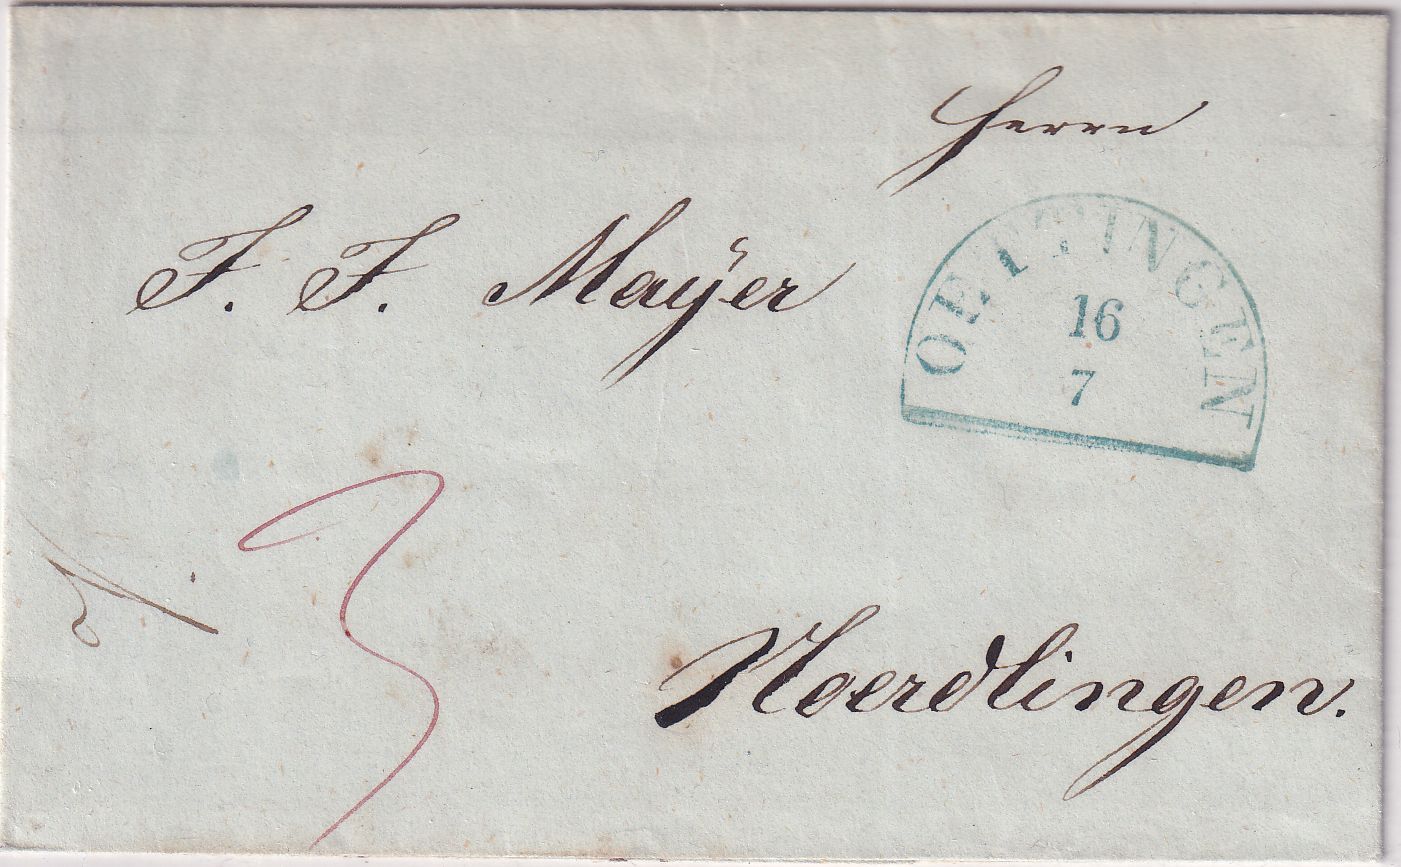 Herrn
J. J. Mayer
OETTINGEN
16
7
3
Noerdlingen.